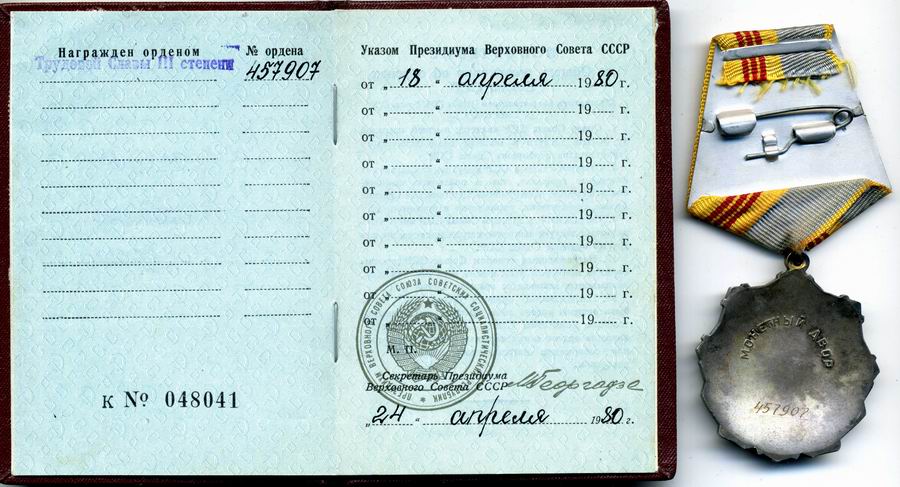 Награжден орденом № ордена
Трудовой Славы III степени 457907
к № 048041
Указом Президиума Верховного Совета СССР
от „ 18 “ апреля 1980 г.
от „ “ 19 г.
от „ “ 19 г.
от „ “ 19 г.
от „ “ 19 г.
от „ “ 19 г.
от „ “ 19 г.
от „ “ 19 г.
от „ “ 19 г.
от „ “ 19 г.
ПРЕЗИДИУМ ВЕРХОВНОГО СОВЕТА СОЮЗА СОВЕТСКИХ СОЦИАЛИСТИЧЕСКИХ РЕСПУБЛИК
М. П.
Секретарь Президиума
Верховного Совета СССР МГеоргадзе
„ 24 “ апреля 1980 г.
МОНЕТНЫЙ ДВОР
457907